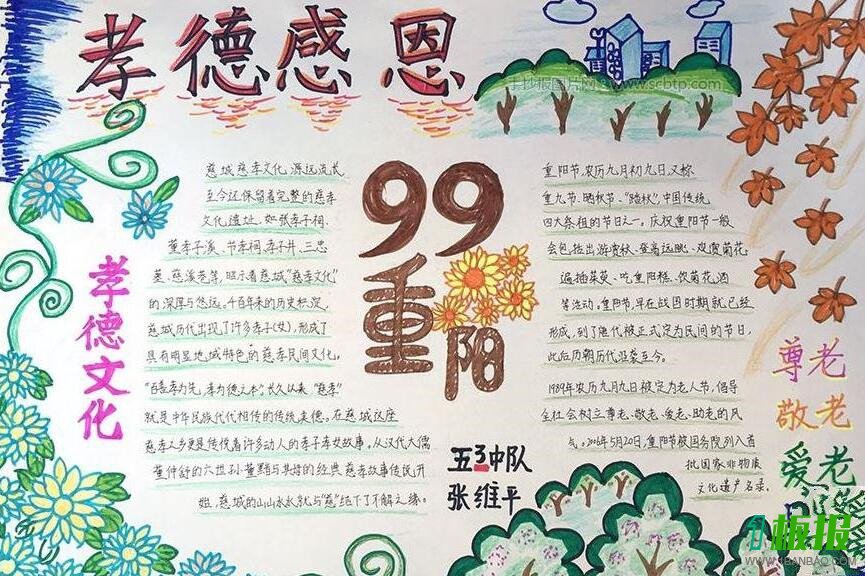 孝德感恩
慈城慈孝文化,源远流长
至今还保留着完整的慈孝
文化遗址,如张孝子祠、
董孝子溪、节孝祠、孝子井、三忠
墓、慈溪巷等,昭示着慈城“慈孝文化”
的深厚与悠远。千百年来的历史积淀,
慈城历代出现了许多孝子(女),形成了
具有明显地域特色的慈孝民间文化。
“百善孝为先,孝为德之本”,长久以来,“慈孝”
就是中华民族代代相传的传统美德。在慈城这座
慈孝之乡更是传信着许多动人的孝子孝女故事。从汉代大儒
董仲舒的六世孙董黯与其母的经典慈孝故事传说开
始,慈城的山山水水就与“慈”结下了不解之缘。
孝德文化
99
重
阳
五3中队
张维平
重阳节,农历九月初九日,又称
重九节、晒秋节、“踏秋”,中国传统
四大祭祖的节日之一。庆祝重阳节一般
会包括出游赏秋、登高远眺、观赏菊花、
遍插茱萸、吃重阳糕、饮菊花酒
等活动。重阳节,早在战国时期就已经
形成,到了唐代被正式定为民间的节日,
此后历朝历代沿袭至今。
1989年农历九月九日被定为老人节,倡导
全社会树立尊老、敬老、爱老、助老的风
气。2006年5月20日,重阳节被国务院列入首
批国家非物质
文化遗产名录。
尊老
敬老
爱老
www.scbtp.com
板报
WWW.1BANBAO.COM